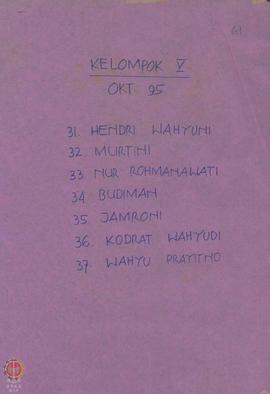 61
KELOMPOK V
OKT 95
31. HENDRI WAHYUNI
32. MURTINI
33 NUR ROHMANAWATI
34 BUDIMAN
35. JAMRONI
36. KODRAT WAHYUDI
37. WAHYU PRAYITNO